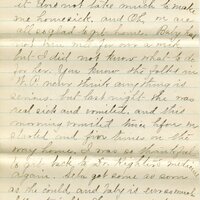 it does not take much to make
me homesick, and Oh we are
all so glad to get home. Baby has
not been well for over a week
but I did not know what to do
for her. You know the folks in
this never think anything is
serious. but last night she was
real sick and vomited, and this
morning vomited twice before we
started and five times on the
way home. I was so thankful
to get back to Dr. Night's medicine
again. Seta got some as soon
as she could, and Baby is ever so much